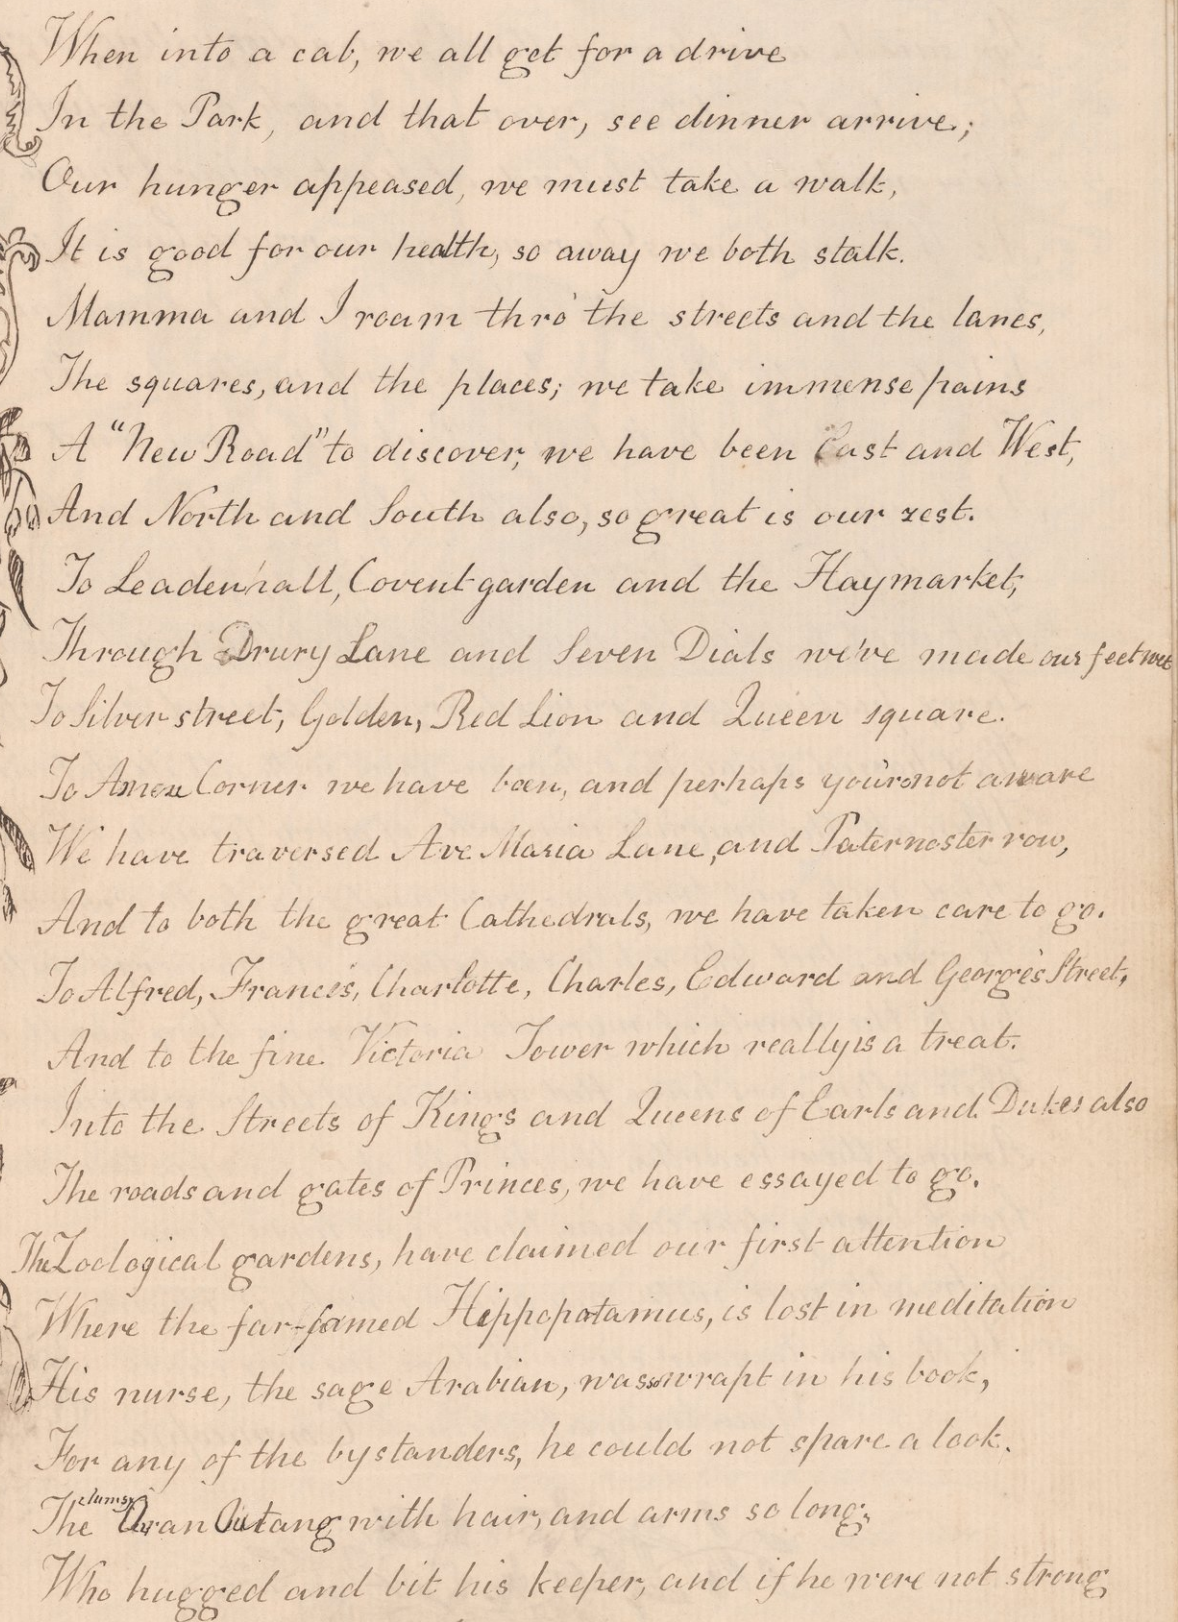 When into a cab, we all get for a drive
In the Park, and that over, see dinner arrive;
Our hunger appeased, we must take a walk,
It is good for our health, so away we both stalk.
Mamma and I roam thro' the streets and the lanes,
The squares, and the places; we take immense pains
A "New Road" to discover, we have been East and West,
And North and South also, so great is our zest.
To Leadenhall, Covent garden and the Haymarket,
Through Drury Lane and Seven Dials we've made our feet wet
To Silver street, Golden, Red Lion and Queen square.
To Amen Corner we have been, and perhaps you're not aware
We have traversed Ave Maria Lane, and Paternoster row,
And to both the great Cathedrals, we have taken care to go.
To Alfred, Francis, Charlotte, Charles, Edward and George's Street,
And to the fine Victoria Tower which really is a treat.
Into the Streets of Kings and Queens of Earls and Dukes also
The roads and gates of Princes, we have essayed to go.
The Zoological gardens, have claimed our first attention
Where the far-famed Hippopotamus, is lost in meditation
His nurse, the sage Arabian, was so wrapt in his book,
For any of the bystanders, he could not spare a look.
The clumsy Oran Outang with hair, and arms so long,
Who hugged and bit his keeper, and if he were not strong